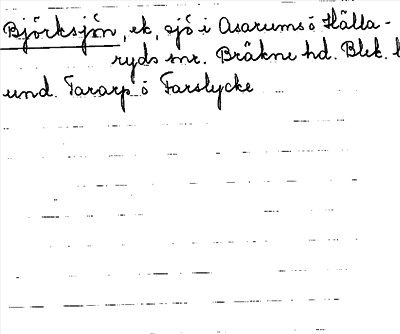 Björksjön, ek. sjö i Asarums o Hälla-
ryds snr. Bräkne hd. Blek. l
und. Tararp o Farslycke